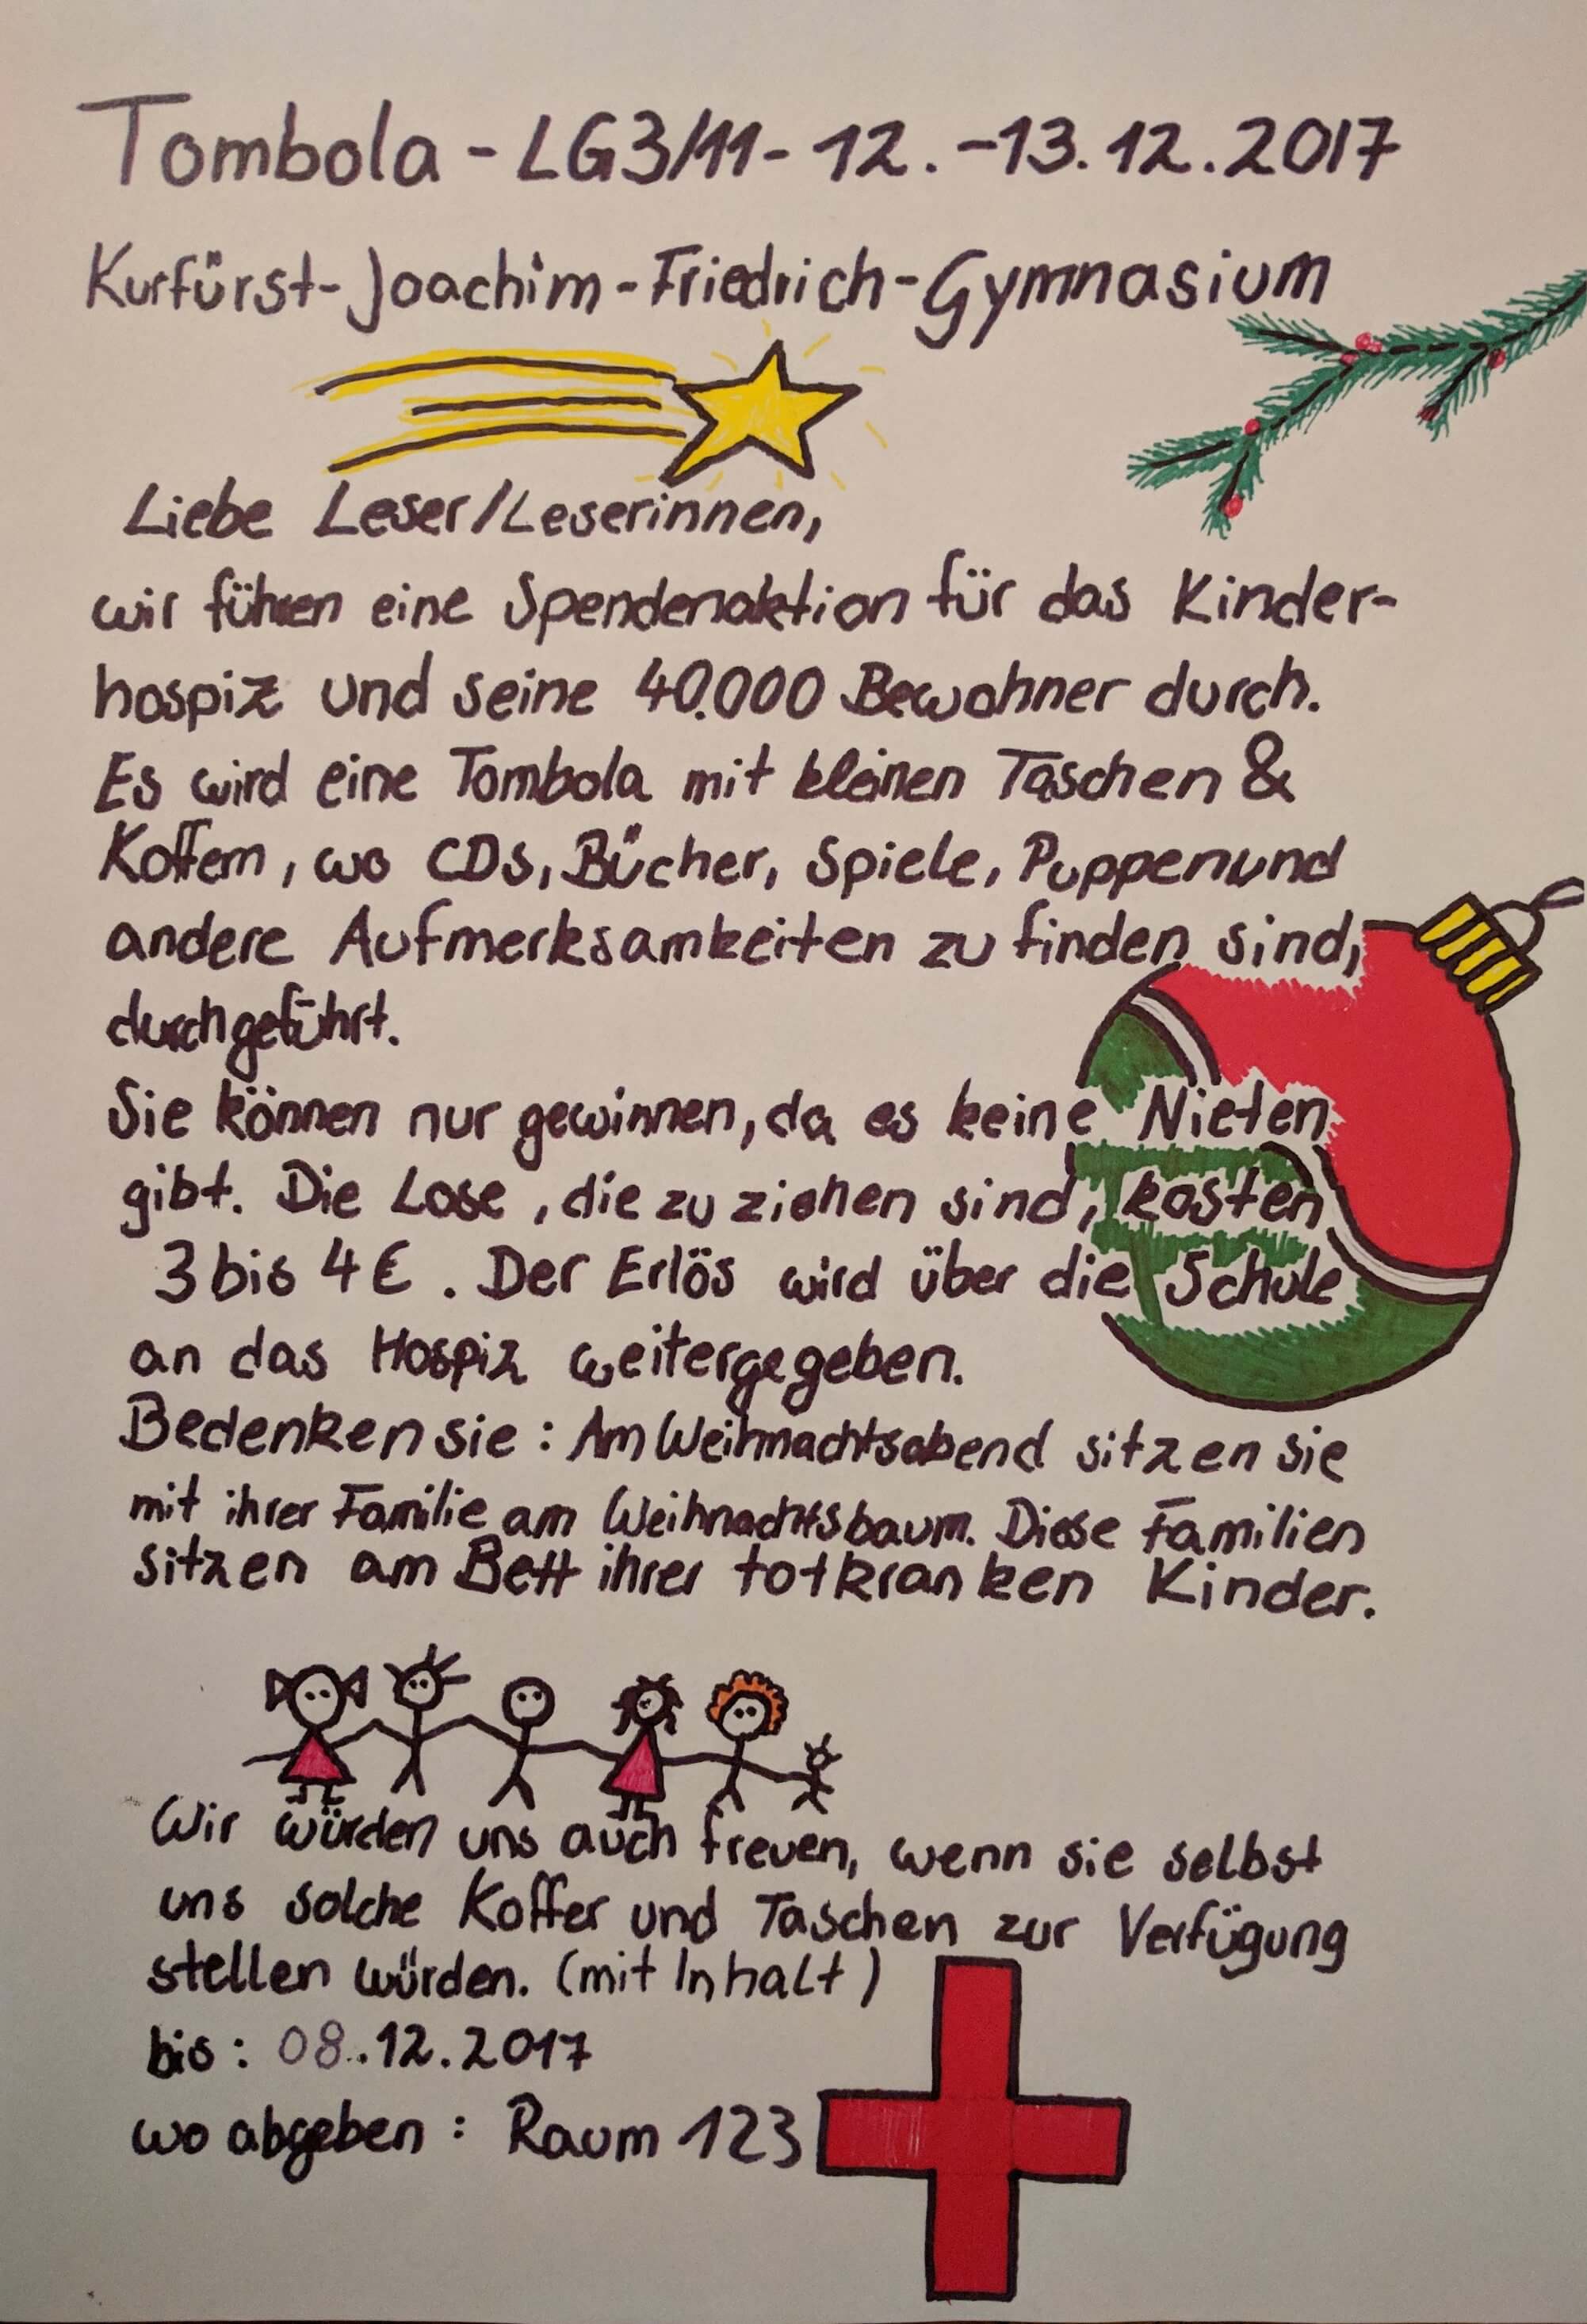 Tombola - LG3/11- 12. -13.12.2017
Kurfürst-Joachim-Friedrich-Gymnasium
Liebe Leser/Leserinnen,
wir führen eine Spendenaktion für das Kinder-
hospiz und seine 40.000 Bewohner durch.
Es wird eine Tombola mit kleinen Taschen &
Koffern, wo CDs, Bücher, Spiele, Puppen und
andere Aufmerksamkeiten zu finden sind,
durchgeführt.
Sie können nur gewinnen, da es keine Nieten
gibt. Die Lose, die zu ziehen sind, kosten
3 bis 4 €. Der Erlös wird über die Schule
an das Hospiz weitergegeben.
Bedenken sie: Am Weihnachtsabend sitzen sie
mit ihrer Familie am Weihnachtsbaum. Diese Familien
sitzen am Bett ihrer totkranken Kinder.
Wir würden uns auch freuen, wenn sie selbst
uns solche Koffer und Taschen zur Verfügung
stellen würden. (mit Inhalt)
bis: 08..12.2017
wo abgeben: Raum 123